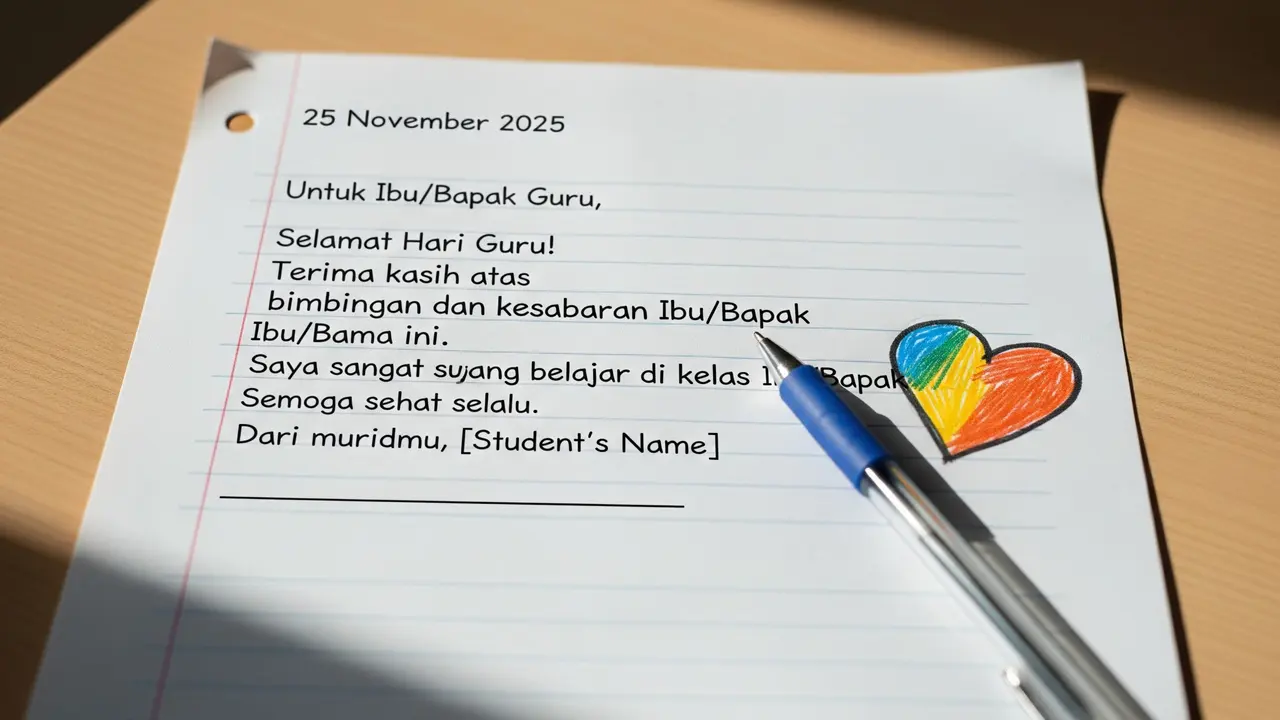 25 November 2025
Untuk Ibu/Bapak Guru,
Selamat Hari Guru!
Terima kasih atas
bimbingan dan kesabaran Ibu/Bapak
Ibu/Bama ini.
Saya sangat sujang belajar di kelas /Bapak
Semoga sehat selalu.
Dari muridmu, [Student's Name]